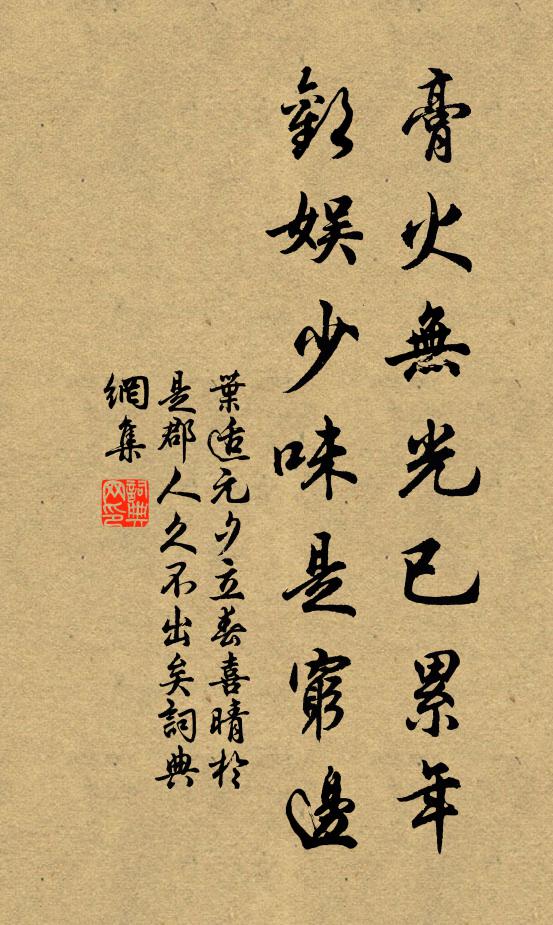 膏火無光已累年
歡娱少味是窮邊
葉适元夕立春喜晴於
是郡人久不出矣詞典
網集
詞典
网印